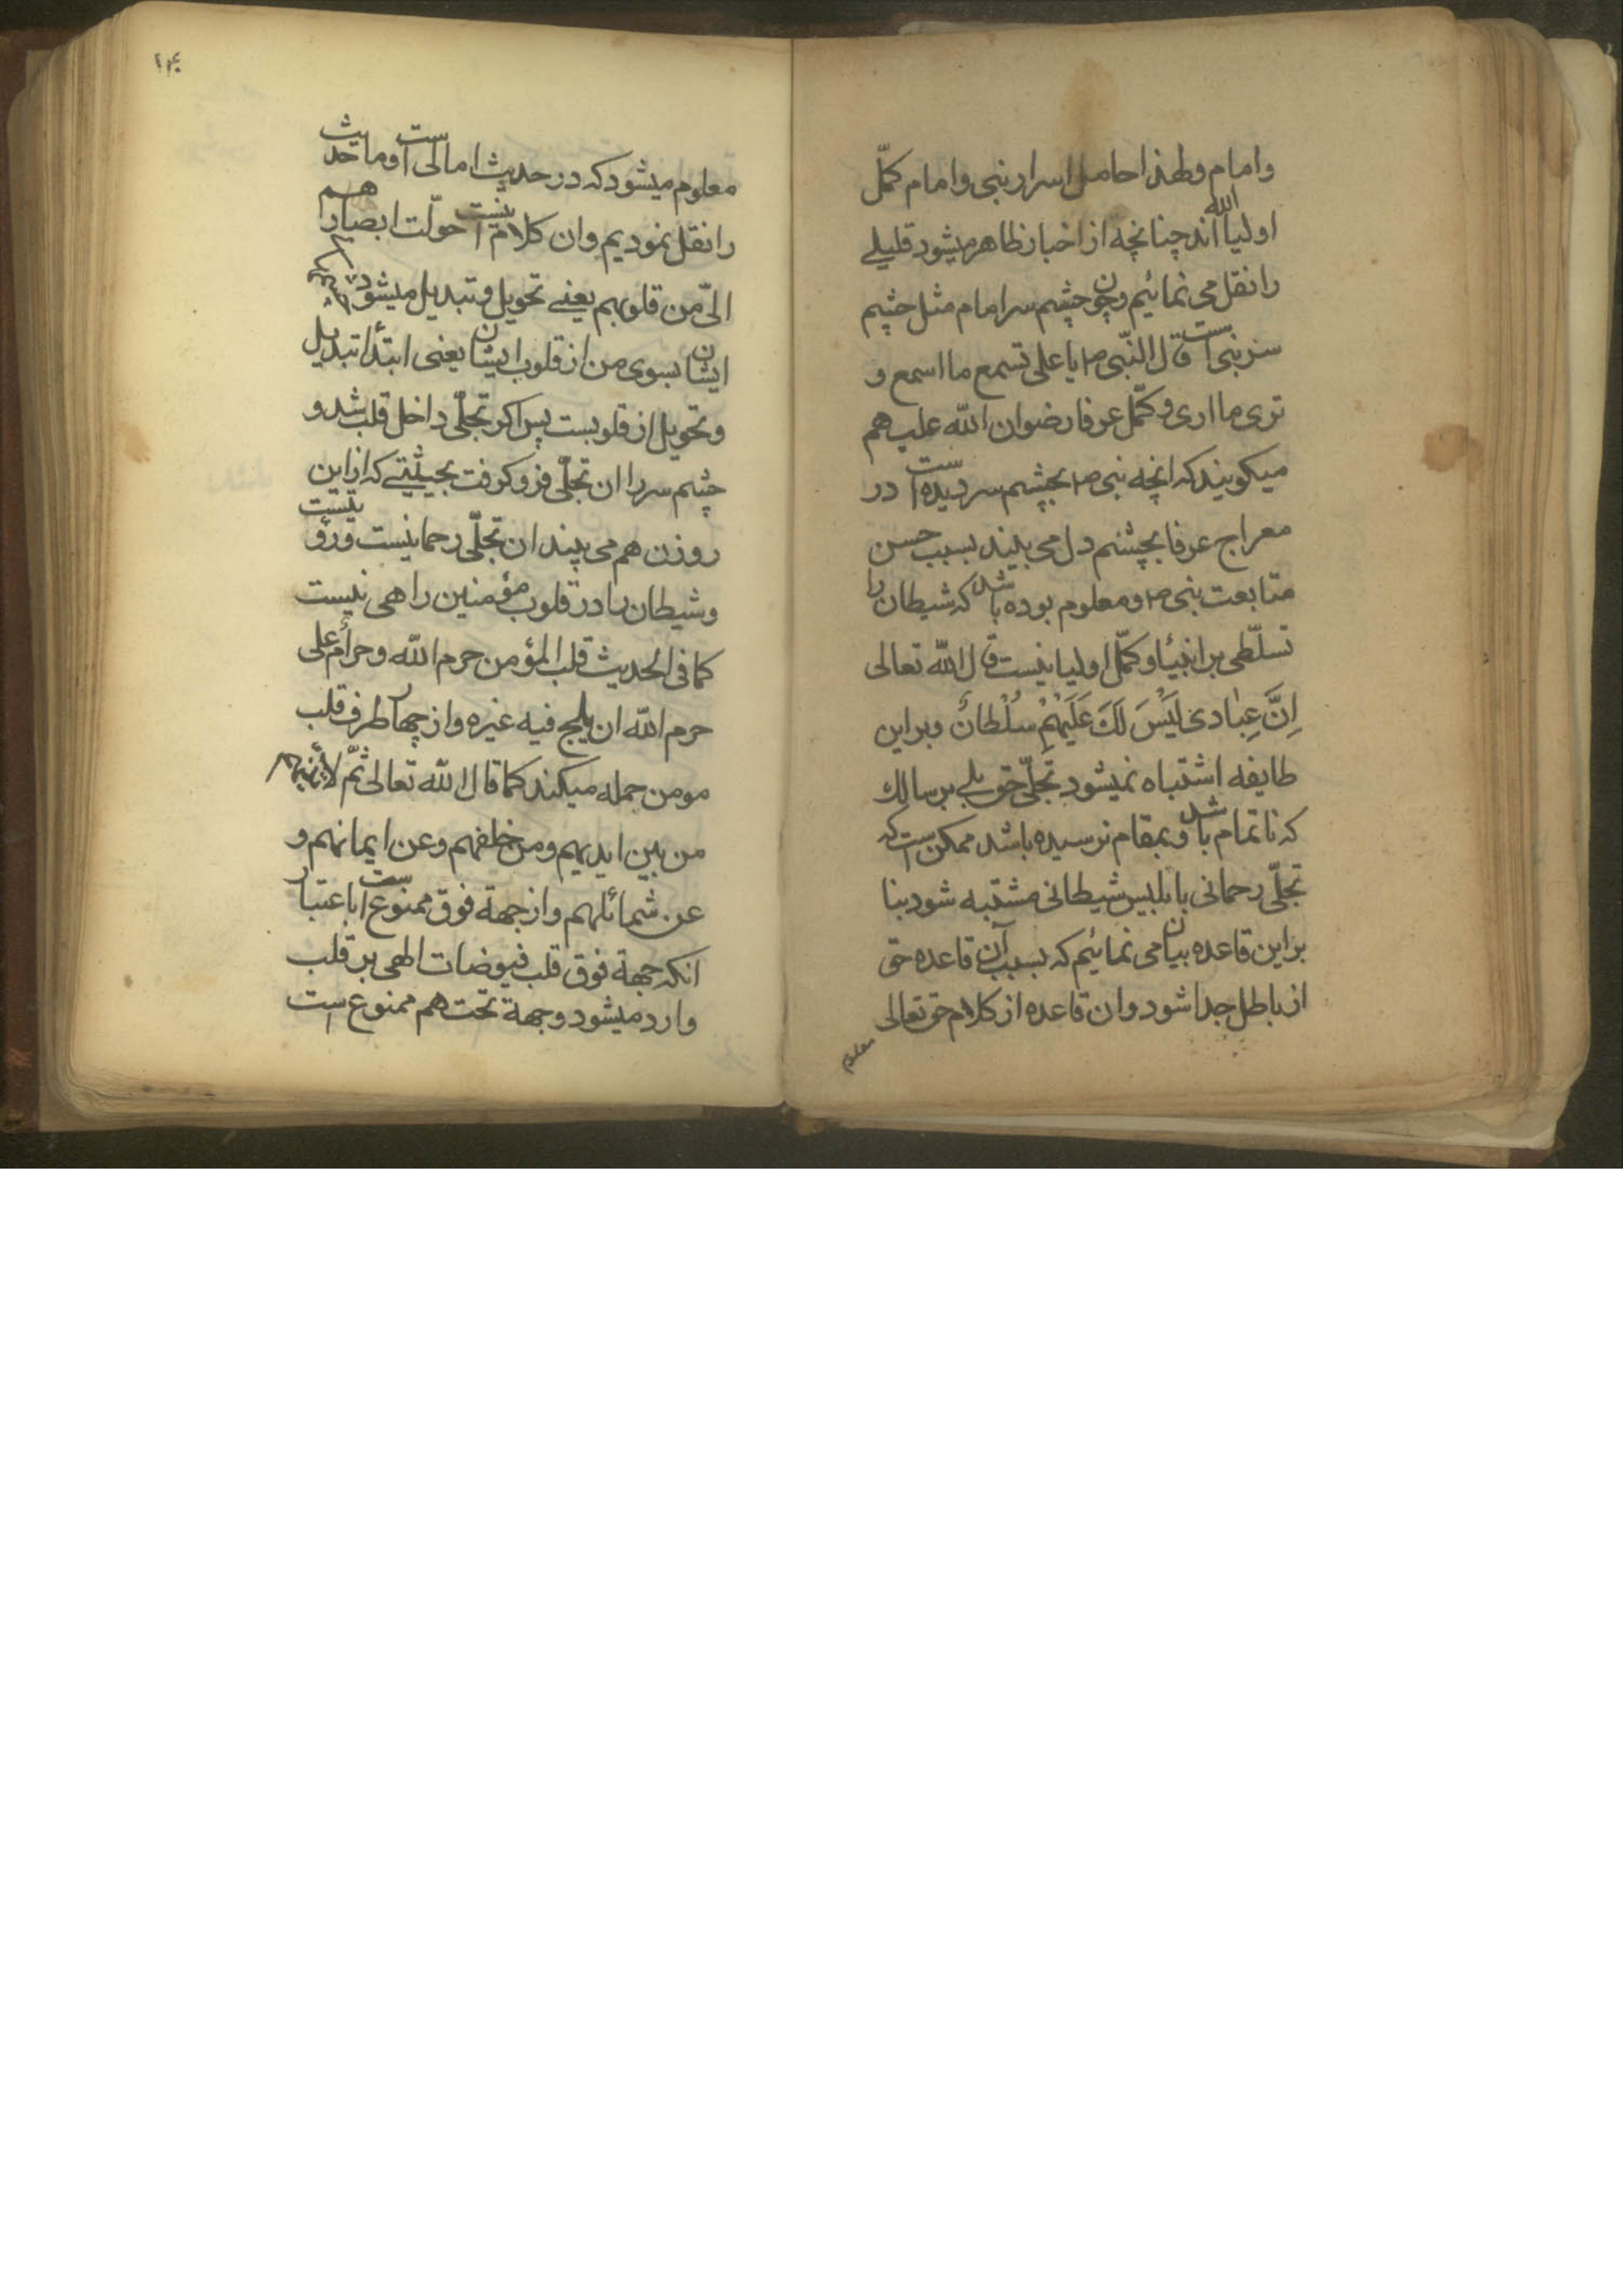 وامام ولهذا حامل اسرار نبی وامام کمّل
اولیاء الله اند چنانچه از اخبار ظاهر میشود قلیلے
را نقل می نمائیم وچون چشم سر امام مثل چشم
سر نبی است قال النّبی ص یا علی تسمع ما اسمع و
تری ما اری و کمّل عرفا رضوان الله علیهم
میکویند که انچه نبی ص بچشم سر دیده است در
معراج عرفا بچشم دل می بینند بسبب حسن
متابعت نبی ص ومعلوم بوده باشد که شیطان را
تسلّطی بر انبیٔا و کمّل اولیا نیست قال الله تعالی
اِنَّ عِبٰادی لَیْسَ لَکَ عَلَیْهِمْ سُلْطانٌ وبر این
طایفه اشتباه نمیشود تجلّی حق بلے بر سالک
که ناتمام باشد وبمقام نرسیده باشد ممکن است که
تجلّی رحمانی با بلبیس شیطانی مشتبه شود بنا
بر این قاعده بیان می نمائیم که بسبب آن قاعده حق
از باطل جدا شود وان قاعده از کلام حق تعالی
معلوم
۱۴۰
معلوم میشود که در حدیث امالی است او ما حدیث
را نقل نمودیم وان کلام اینست حوّلت ابصارهم
الیّ من قلوبهم یعنے تحویل وتبدیل میشود
ایشان بسوی من از قلوب ایشان یعنی ابتدأ تبدیل
وتحویل از قلوبست پس اکر تجلّی داخل قلب شد و
چشم سر را ان تجلّی فرو کرفت بحیثیتے که از این
روزن هم می بیند ان تجلّی رحمانیست
وشیطان را در قلوب مؤمنین راهی نیست
کما فی الحدیث قلب المؤمن حرم الله وحرامٌ علی
حرم الله ان یلج فیه غیره واز چهار طرف قلب
مومن حمله میکند کما قال الله تعالی ثمّ لأتینهم
من بین ایدیهم ومن خلفهم وعن ایمانهم و
عن شمائلهم واز جهة فوق ممنوع است باعتبار
انکه جهة فوق قلب فیوضات الهی بر قلب
وارد میشود وجهة تحت هم ممنوع است